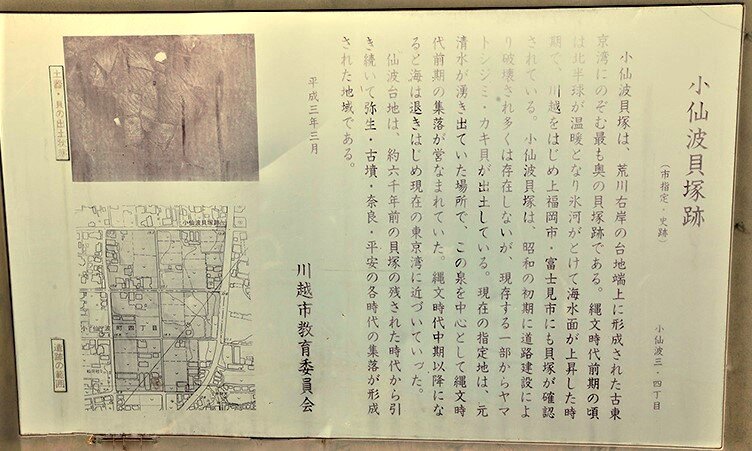 小仙波貝塚跡
（市指定・史跡）
小仙波三・四丁目
小仙波貝塚は、荒川右岸の台地端上に形成された古東
京湾にのぞむ最も奥の貝塚跡である。縄文時代前期の頃
は北半球が温暖となり氷河がとけて海水面が上昇した時
期で、川越をはじめ上福岡市・富士見市にも貝塚が確認
されている。小仙波貝塚は、昭和の初期に道路建設によ
り破壊され多くは存在しないが、現存する一部からヤマ
トシジミ・カキ貝が出土している。現在の指定地は、元
清水が湧き出ていた場所で、この泉を中心として縄文時
代前期の集落が営なまれていた。縄文時代中期以降にな
ると海は退きはじめ現在の東京湾に近づいていった。
仙波台地は、約六千年前の貝塚の残された時代から引
き続いて弥生・古墳・奈良・平安の各時代の集落が形成
された地域である。
平成三年三月
川越市教育委員会
土器・貝の出土状態
小仙波貝塚跡
小仙波町四丁目
遺跡の範囲